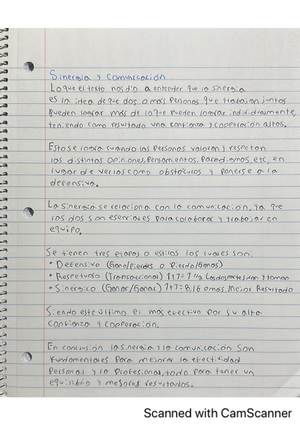 Sinergia y Comunicación
Lo que el texto nos da a entender que la sinergia
es la idea de que dos o más personas que trabajan juntos
pueden lograr más de lo que pueden lograr individualmente,
teniendo como resultado una confianza y cooperación altos.
Esto se logra cuando las personas valoran y respetan
los distintos opiniones, Pensamientos, Paradigmas, etc, en
lugar de verlos como obstáculos y ponerse a la
defensiva.
La sinergia se relaciona con la comunicación, ya que
las dos son esenciales para colaborar y trabajar en
equipo.
Se tienen tres etapas o estilos los cuales son:
• Defensiva (Gano/pierdes o Pierdo/Ganas)
• Respetuosa (Transaccional) 1+1=1 1/2
• Sinérgica (Ganar/Ganar) 1+1= 8, 16 o mas, Mejor Resultado
Siendo este ultimo el más efectivo por su alta
confianza y cooperación.
En conclusión la sinergia y la comunicación son
fundamentales para mejorar la efectividad
personal y la profesional, todo para tener un
equilibrio y mejores resultados.
Scanned with CamScanner